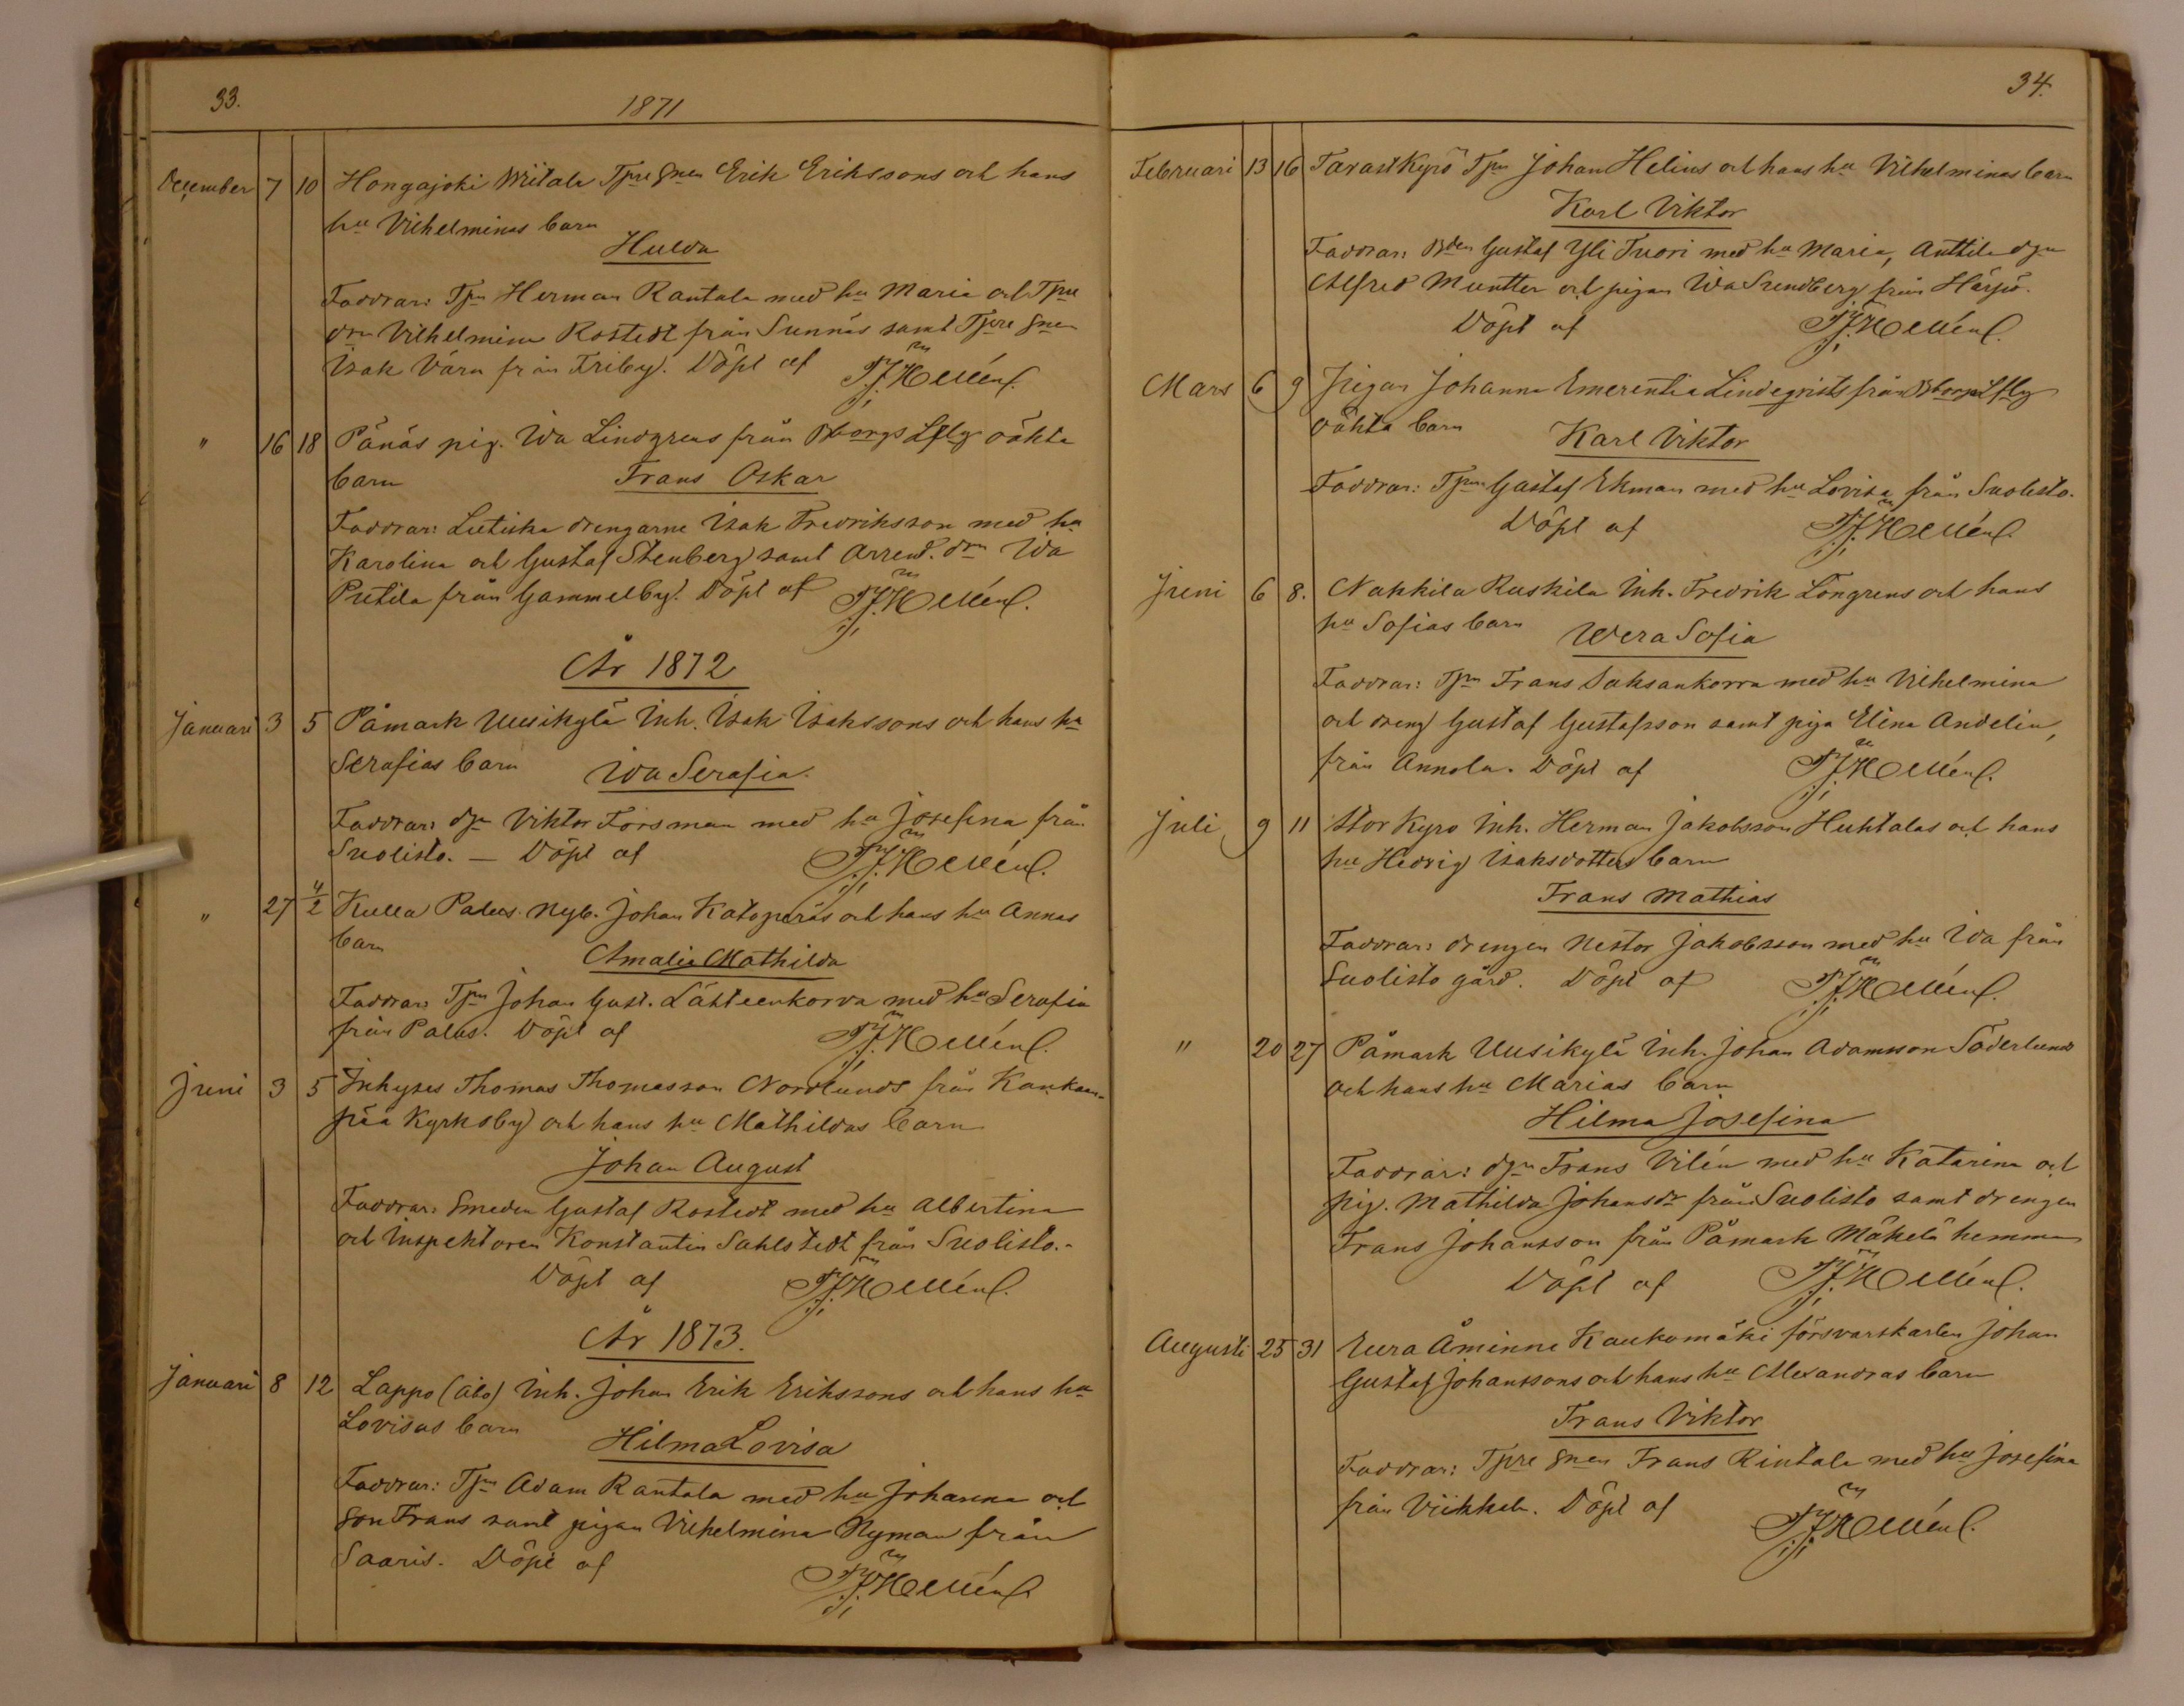 33.
1871
December 7 10 Hongajoki Witala Tpre Snen Erik Erikssons och hans
hu Vilhelminas barn
Hulda
Faddrar: Tpn Herman Rantala med hu Maria och Tpre
drn Vilhelmina Rostedt från Sunnäs samt Tpre Snen
Isak Värn från Friby. Döpt af TJHellén
" 16 18 Pänäs pig. Ida Lindgrens från Bborgs Lflg oäkta
barn Frans Oskar
Faddrar: drengarne Isak Fredriksson med hu
Karolina och Gustaf Stenberg samt Arrend. drn Ida
Putila från Gammelby. Döpt af TJHellén
År 1872
Januari 3 5 Påmark Uusikylä Inh. Isak Isakssons och hans hu
Serafias barn Ida Serafia.
Faddrar: dgn Viktor Forsman med hu Josefina från
Suolisto. — Döpt af TJHellén
" 27 4/2 Kulla Palus. Nyb. Johan Katoperäs och hans hu Annas
barn
Amalia Mathilda
Faddrar: Tpn Johan Gust. Lähteenkorva med hu Serafia
från Palus. Döpt af TJHellén
Juni 3 5 Inhyses Thomas Thomasson Nordlunds från Kankaan-
pää Kyrkoby och hans hu Mathildas barn
Johan August
Faddrar: Smeden Gustaf Rostedt med hu Albertina
och Inspektoren Konstantin Sahlstedt från Suolisto.-
Döpt af TJHellén
År 1873.
Januari 8 12 Lappo (Åbo) Inh. Johan Erik Erikssons och hans hu
Lovisas barn Hilma Lovisa
Faddrar: Tpn Adam Rantala med hu Johanna och
Son Frans samt pigan Vilhelmina Nyman från
Saaris. Döpt af TJHellén
34.
Februari 13 16 Tavast Kyrö Tpn Johan Helius och hans hu Vilhelminas barn
Karl Viktor
Faddrar: Bden Gustaf Yli Tuori med hu Maria, Anttila dgn
Alfred Muntter och pigan Ida Sundberg från Härpö.
Döpt af TJHellén
Mars 6 9 Pigan Johanna Emerentia Lindeqvists från Bborgs Lflg
oäkta barn Karl Viktor
Faddrar: Tpn Gustaf Ekman med hu Lovisa från Suolisto.
Döpt af TJHellén
Juni 6 8. Nakkila Ruskila Inh. Fredrik Löngrens och hans
hu Sofias barn Wera Sofia
Faddrar: Tpn Frans Saksankorva med hu Vilhelmina
och dreng Gustaf Gustafsson samt piga Elina Andelin,
från Annola. Döpt af TJHellén
Juli 9 11 Stor Kyro Inh. Herman Jakobsson Huhtalas och hans
hu Hedvig Isaksdotters barn
Frans Mathias
Faddrar: drengen Nestor Jakobsson med hu Ida från
Suolisto gård. Döpt af TJHellén
" 20 27 Påmark Uusikylä Inh. Johan Adamsson Söderlunds
och hans hu Marias barn
Hilma Josefina
Faddrar: dgn Frans Vilén med hu Katarina och
pig. Mathilda Johansdr från Suolisto samt drengen
Frans Johansson från Påmark Mäkelä hemman
Döpt af TJHellén
Augusti 25 31 Eura Åminne Kaukomäki försvarskarlen Johan
Gustaf Johanssons och hans hu Alexandras barn
Frans Viktor
Faddrar: Tpre Snen Frans Rintala med hu Josefina
från Viikkala. Döpt af TJHellén